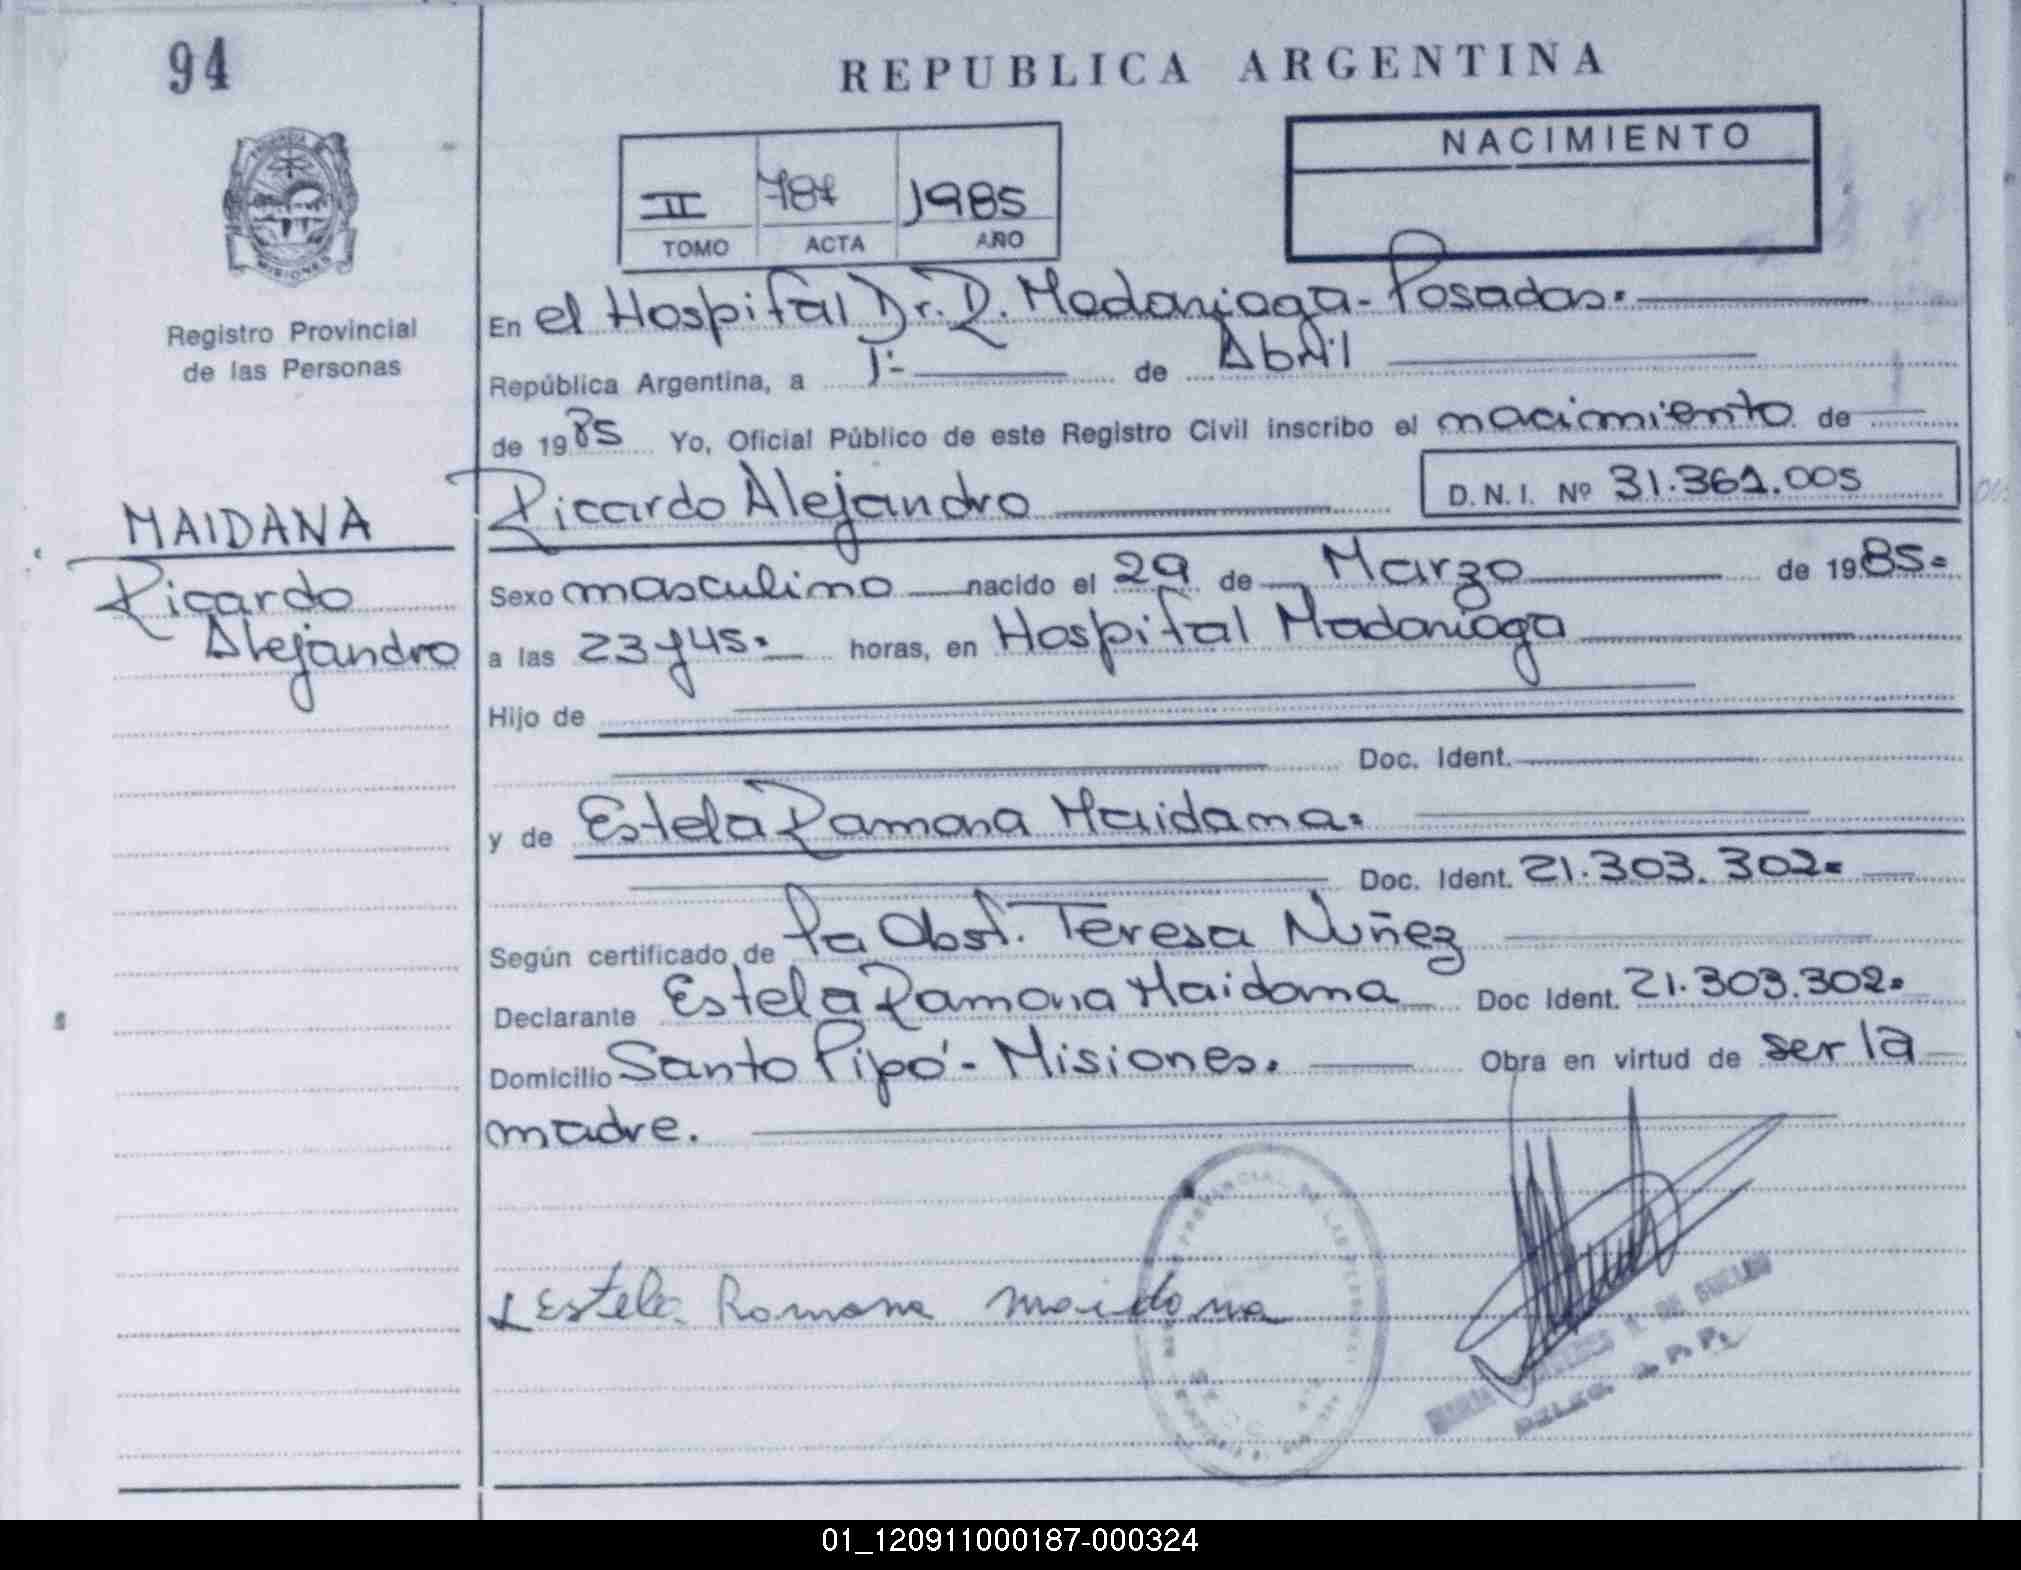 94
REPUBLICA ARGENTINA
NACIMIENTO
II 787 1985
TOMO ACTA AÑO
MISIONES
Registro Provincial
de las Personas
En el Hospital Dr. R. Madariaga - Posadas.
República Argentina, a 1- de Abril
de 1985 Yo, Oficial Público de este Registro Civil inscribo el nacimiento de
Ricardo Alejandro D.N.I. Nº 31.361.005
MAIDANA
Ricardo
Alejandro
Sexo masculino nacido el 29 de Marzo de 1985.
a las 23 y 45. horas, en Hospital Madariaga
Hijo de
Doc. Ident.
y de Estela Ramona Maidana.
Doc. Ident. 21.303.302.
Según certificado de la Obst. Teresa Nuñez
Declarante Estela Ramona Maidana Doc Ident. 21.303.302.
Domicilio Santo Pipó - Misiones. Obra en virtud de ser la
madre.
Estela Ramona Maidana
01_120911000187-000324